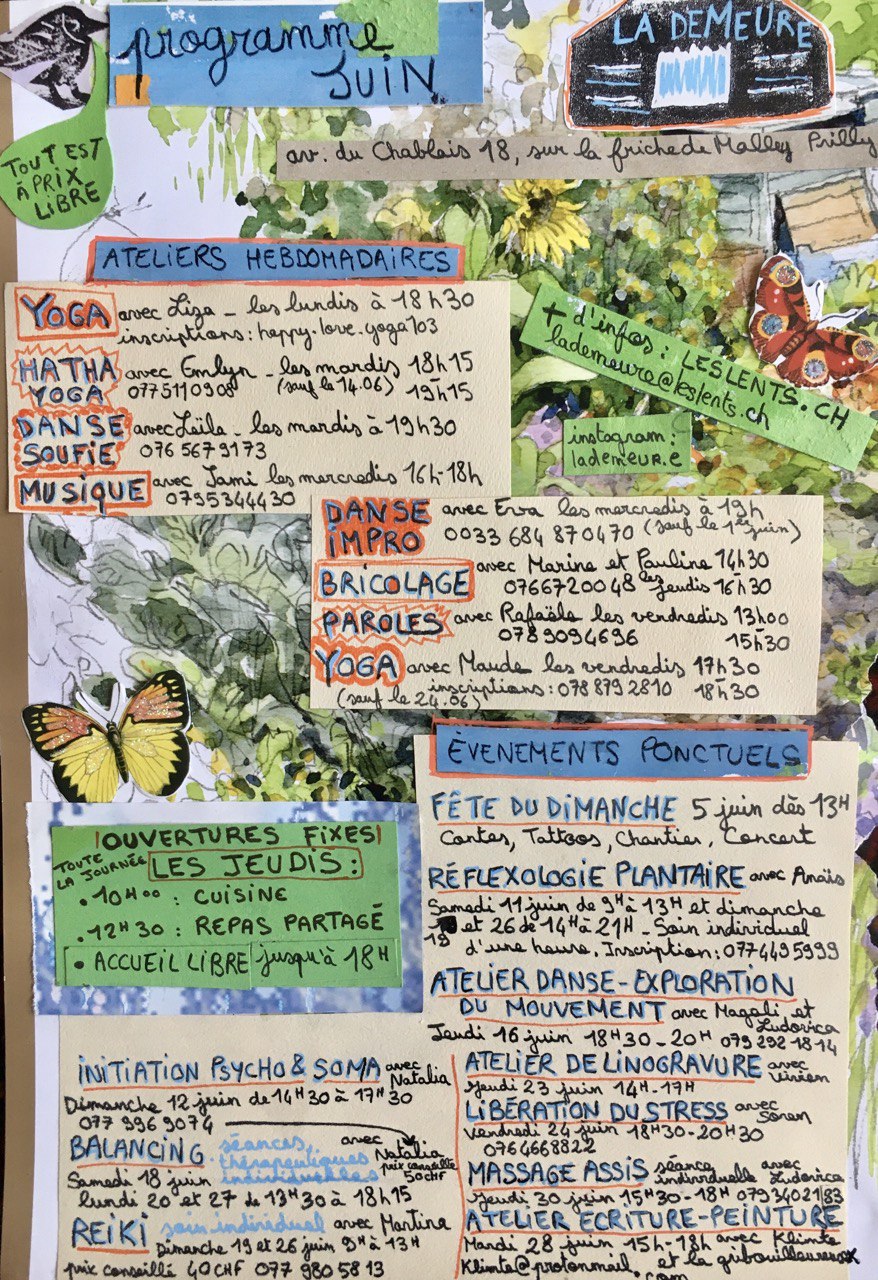 programme
JUIN
LA DEMEURE
TOUT EST
À PRIX
LIBRE
av. du Chablais 18, sur la friche de Malley Prilly
ATELIERS HEBDOMADAIRES
YOGA avec Liza - les lundis à 18h30
inscriptions: happy.love.yoga703
HATHA YOGA avec Emlyn - les mardis 18h15 - 19h15
0775110908 (sauf le 14.06)
DANSE SOUFIE avec Leïla - les mardis à 19h30
076 567 9173
MUSIQUE avec Jami les mercredis 16h-18h
0795344430
+ d'infos: LESLENTS.CH
lademeure@leslents.ch
instagram:
lademeur.e
DANSE IMPRO avec Erva les mercredis à 19h
0033 684 870470 (sauf le 1er juin)
BRICOLAGE avec Marine et Pauline 14h30 -
0766720048 les jeudis 16h30
PAROLES avec Rafaële les vendredis 13h00 -
0789094696 15h30
YOGA avec Maude les vendredis 17h30 -
(sauf le 24.06) inscriptions: 078 879 2810 18h30
ÉVENEMENTS PONCTUELS
FÊTE DU DIMANCHE 5 juin dès 13H
Contes, Tattoos, Chantier, Concert
RÉFLEXOLOGIE PLANTAIRE avec Anaïs
Samedi 11 juin de 9H à 13H et dimanche
19 et 26 de 14H à 21H - Soin individuel
d'une heure. Inscription: 0774495999
ATELIER DANSE-EXPLORATION
DU MOUVEMENT avec Magali et Ludovica
Jeudi 16 juin 18H30-20H 079 292 18 14
ATELIER DE LINOGRAVURE avec Vivien
Jeudi 23 juin 14H-17H
LIBÉRATION DU STRESS avec Soren
Vendredi 24 juin 18H30-20H30
0764668822
MASSAGE ASSIS séance individuelle avec Ludovica
Jeudi 30 juin 15H30-18H 0793402183
ATELIER ECRITURE-PEINTURE
Mardi 28 juin 15h-18h avec Klimte
Klimte@protonmail.com et la gribouilleureux
!OUVERTURES FIXES!
TOUTE LA JOURNÉE LES JEUDIS:
• 10H00 : CUISINE
• 12H30 : REPAS PARTAGÉ
• ACCUEIL LIBRE jusqu'à 18H
INITIATION PSYCHO & SOMA avec Natalia
Dimanche 12 juin de 14H30 à 17H30
077 996 9074
BALANCING séances thérapeutiques individuelles avec Natalia
prix conseillé 50CHF
Samedi 18 juin
lundi 20 et 27 de 13H30 à 18h15
REIKI soin individuel avec Martine
Dimanche 19 et 26 juin 9H à 13H
prix conseillé 40CHF 077 980 58 13